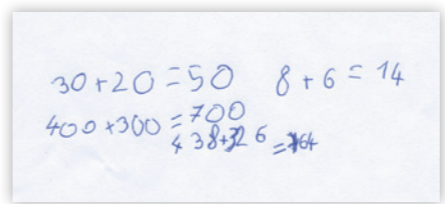 30+20=50 8+6=14
400+300=700
438+326=764